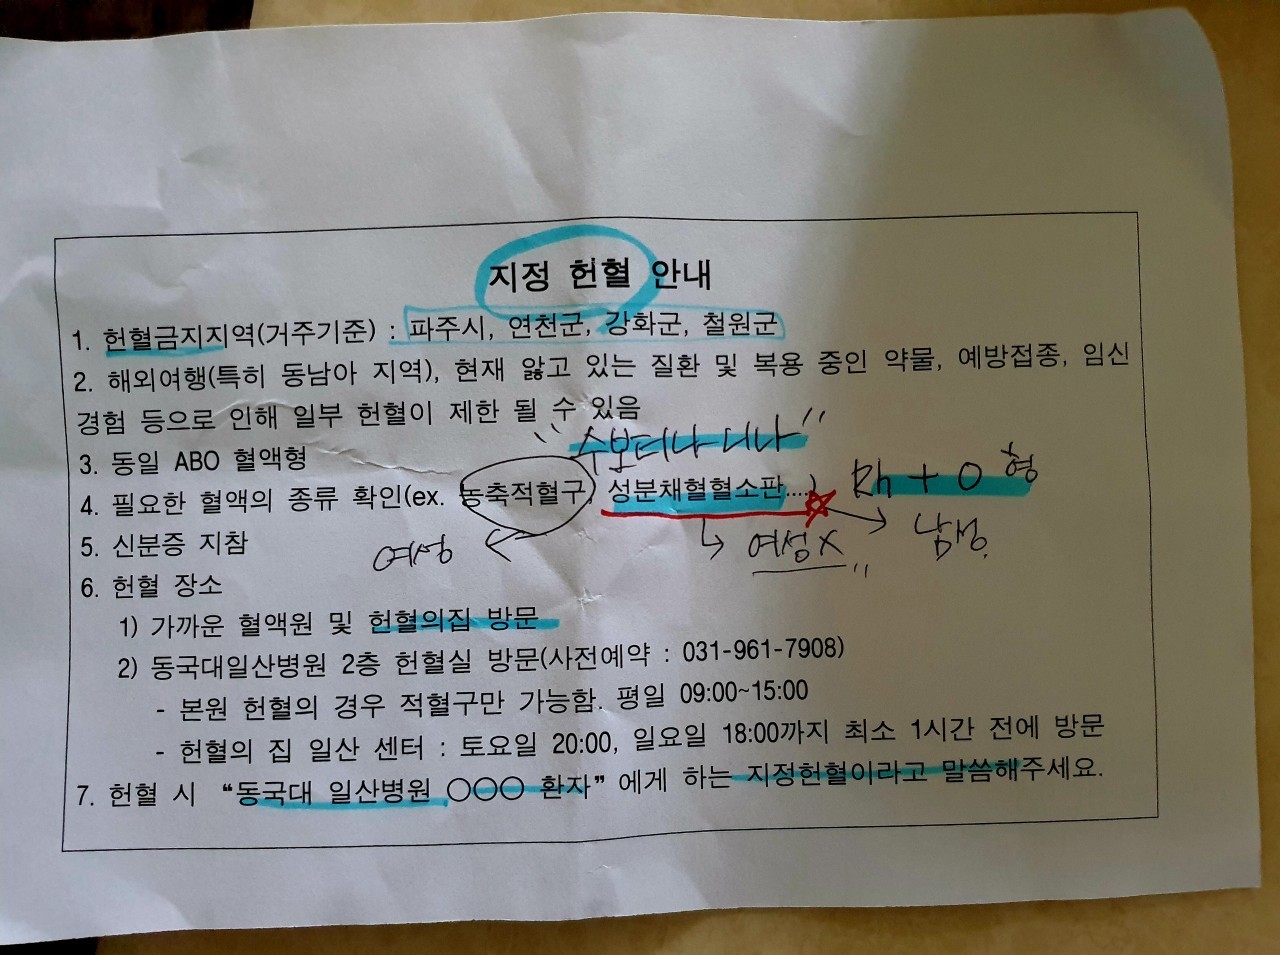 지정 헌혈 안내
1. 헌혈금지지역(거주기준) : 파주시, 연천군, 강화군, 철원군
2. 해외여행(특히 동남아 지역), 현재 앓고 있는 질환 및 복용 중인 약물, 예방접종, 임신
경험 등으로 인해 일부 헌혈이 제한 될 수 있음
3. 동일 ABO 혈액형
4. 필요한 혈액의 종류 확인(ex. 농축적혈구, 성분채혈혈소판....)
Rh + O 형
여성
여성X
남성
5. 신분증 지참
6. 헌혈 장소
1) 가까운 혈액원 및 헌혈의집 방문
2) 동국대일산병원 2층 헌혈실 방문(사전예약 : 031-961-7908)
- 본원 헌혈의 경우 적혈구만 가능함. 평일 09:00~15:00
- 헌혈의 집 일산 센터 : 토요일 20:00, 일요일 18:00까지 최소 1시간 전에 방문
7. 헌혈 시 “동국대 일산병원 ○○○ 환자” 에게 하는 지정헌혈이라고 말씀해주세요.